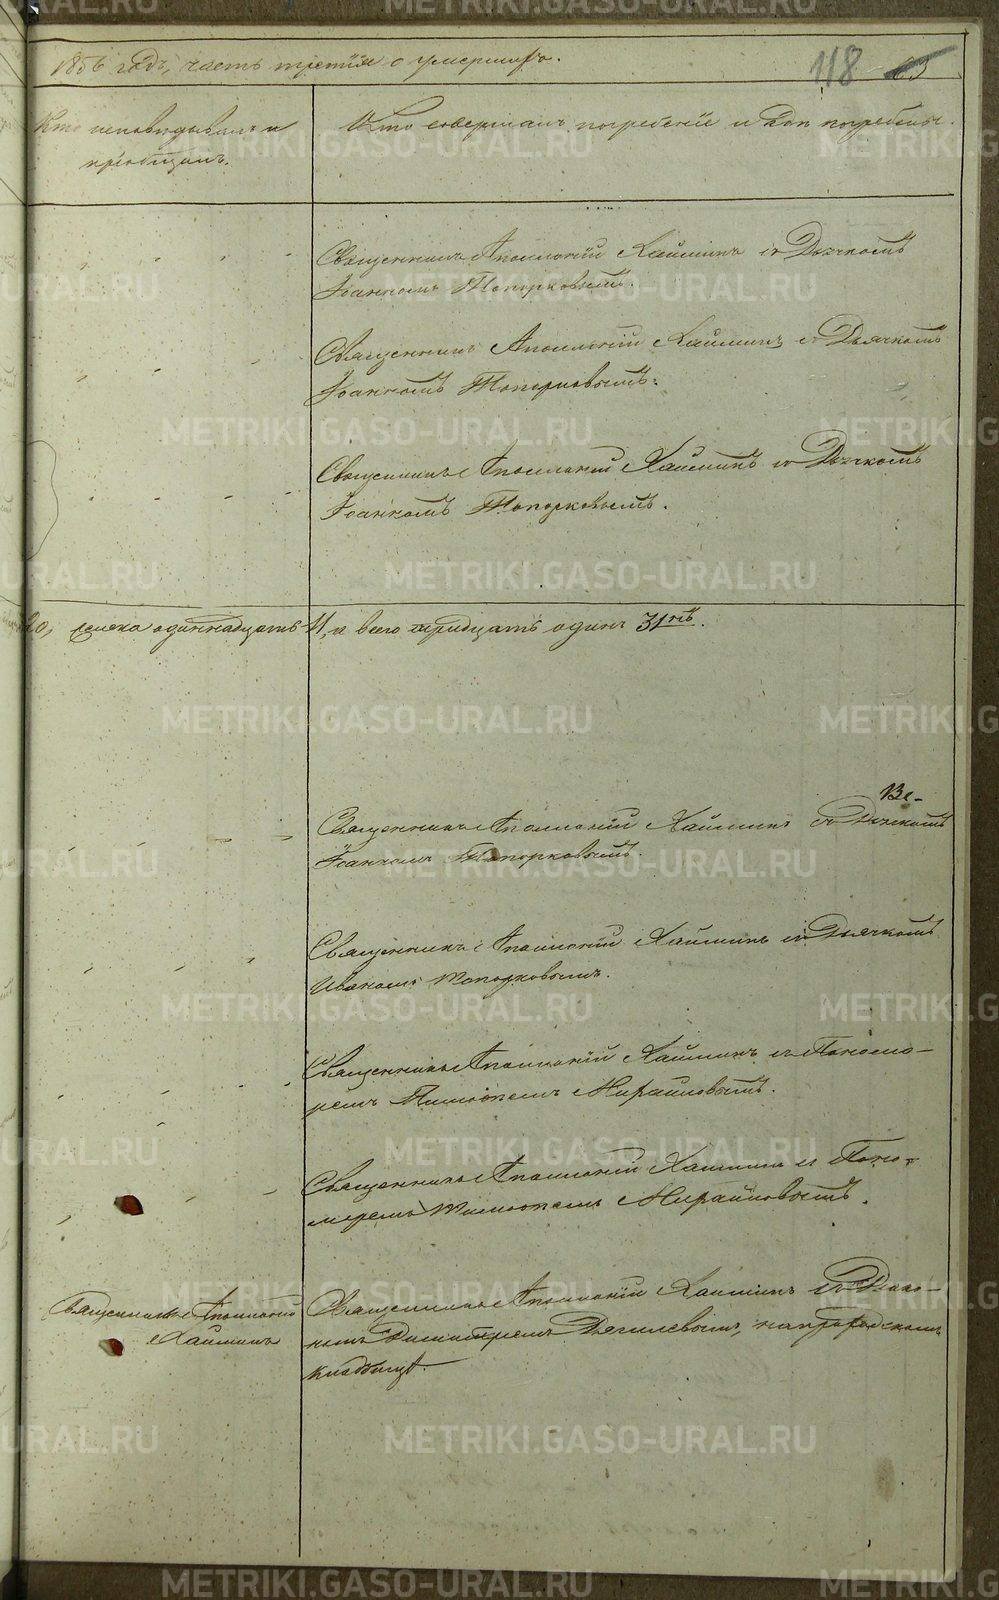 1856 годъ, часть третiя о умершихъ.
118
Кто исповѣдывалъ и
прiобщалъ.
Кто совершалъ погребенiе и гдѣ погребены.
Священникъ Аполлонiй Хаймин съ Дьячкомъ
Iоанномъ Топорковымъ.
Священникъ Аполлонiй Хаймин съ Дьячкомъ
Iоанномъ Топорковымъ.
Священникъ Аполлонiй Хаймин съ Дьячкомъ
Iоанномъ Топорковымъ.
20, женска одиннадцать 11, и всего тридцать один 31нъ.
Священникъ Аполлонiй Хаймин съ Дьячкомъ
Iоанномъ Топорковымъ.
Священникъ Аполлонiй Хаймин съ Дьячкомъ
Иваномъ Топорковымъ.
Священникъ Аполлонiй Хаймин съ Пономо-
ремъ Тимофеемъ
Священникъ Аполлонiй Хаймин съ Поно-
маремъ Тимофеемъ
Священникъ Аполлонiй
Хаймин
Священникъ Аполлонiй Хаймин съ Дiако-
номъ Димитрiемъ Дягилевымъ, на городскомъ
кладбищѣ.
METRIKI.GASO-URAL.RU